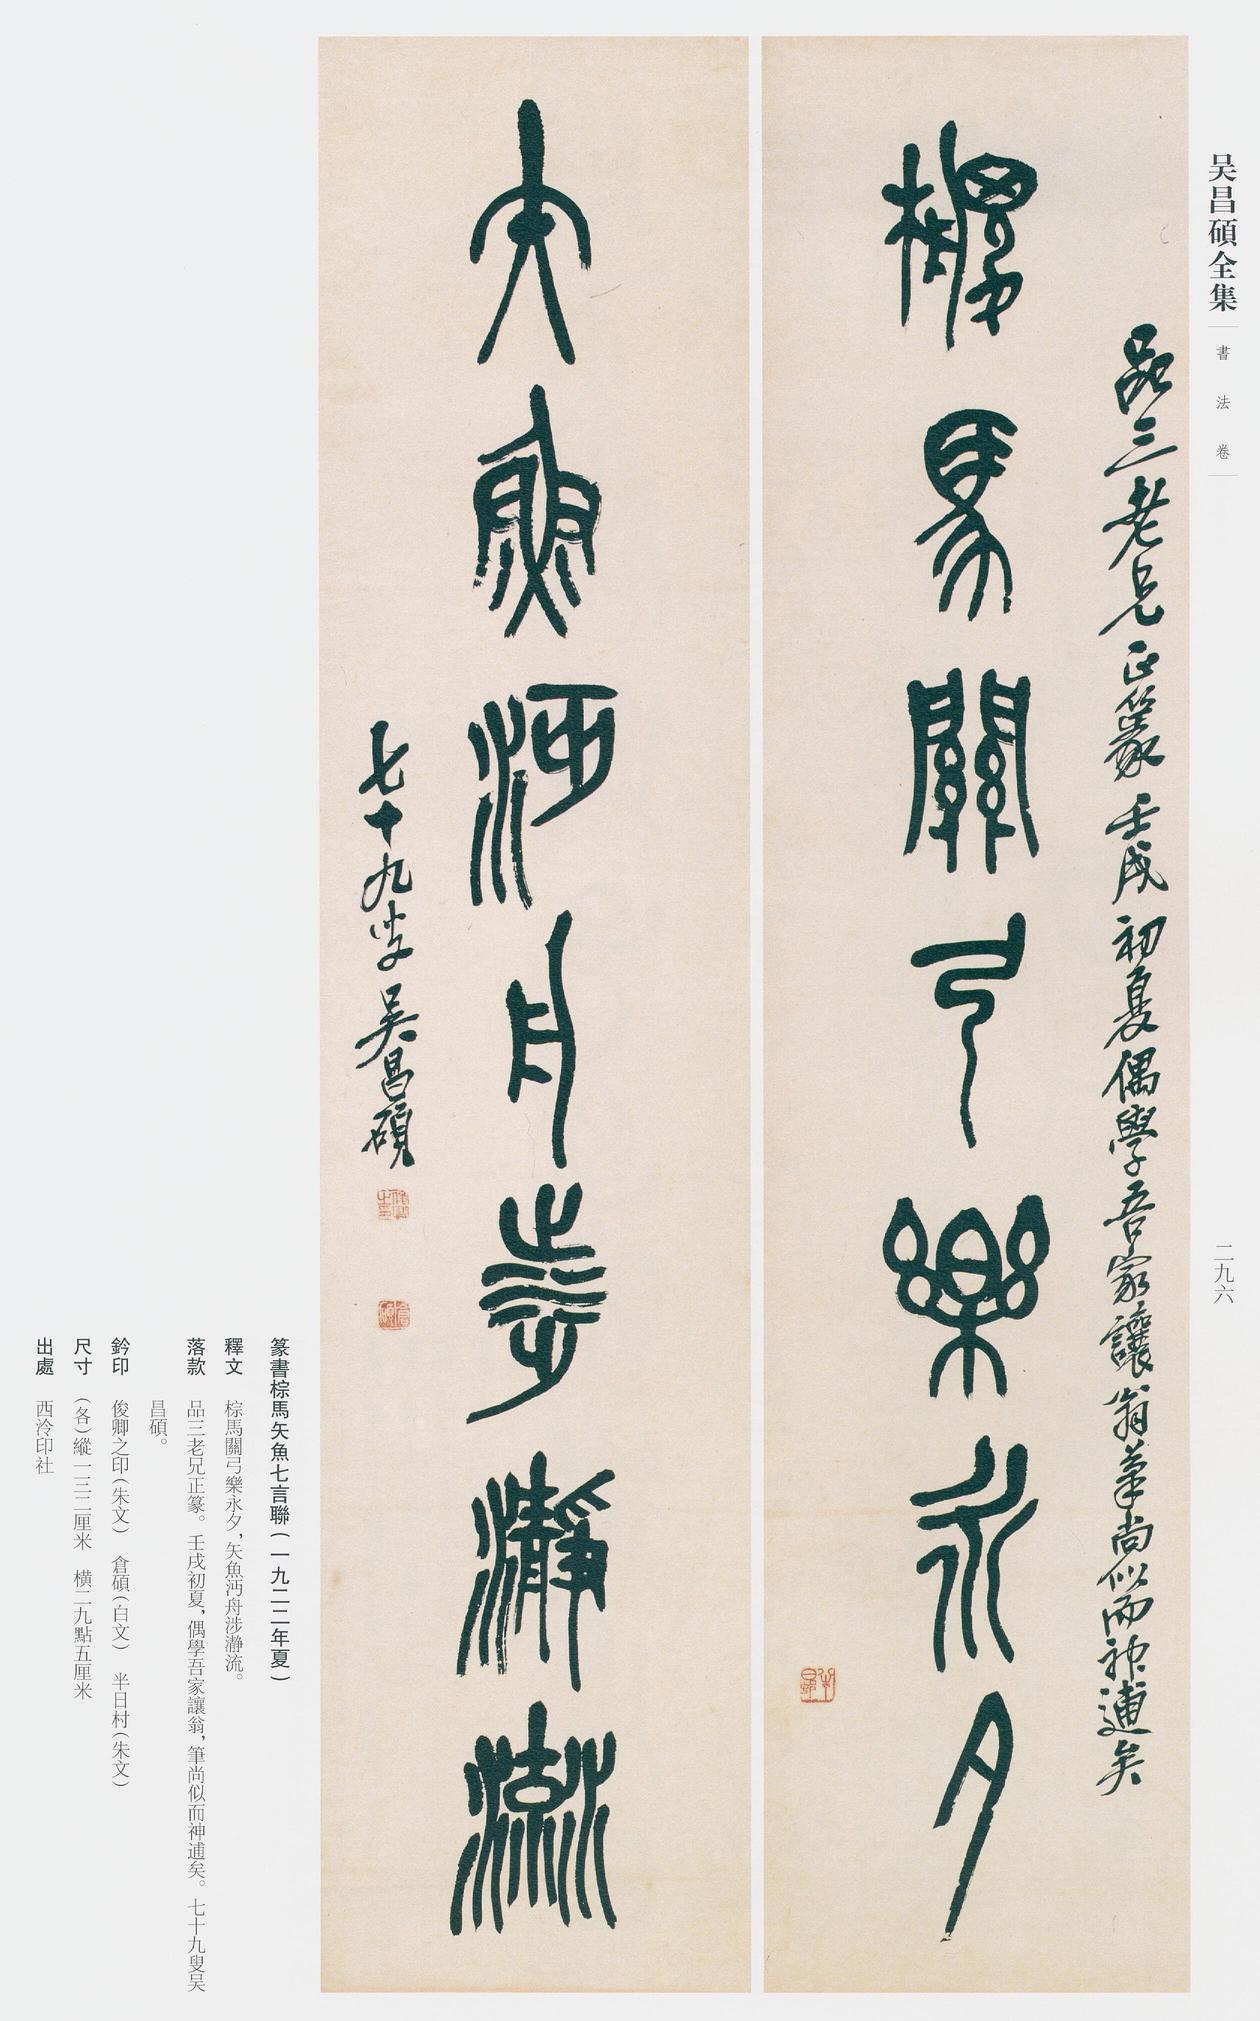 吴昌碩全集
書法卷
二九六
品三老兄正篆壬戌初夏偶學吾家讓翁筆尚似而神逋矣
棕馬關弓樂永夕
矢魚沔舟涉瀞流
七十九叟吴昌碩
篆書棕馬矢魚七言聯(一九二二年夏)
釋文 棕馬關弓樂永夕，矢魚沔舟涉瀞流。
落款 品三老兄正篆。壬戌初夏，偶學吾家讓翁，筆尚似而神逋矣。七十九叟吴
昌碩。
鈐印 俊卿之印(朱文) 倉碩(白文) 半日村(朱文)
尺寸 (各)縱一三二厘米 横二九點五厘米
出處 西泠印社